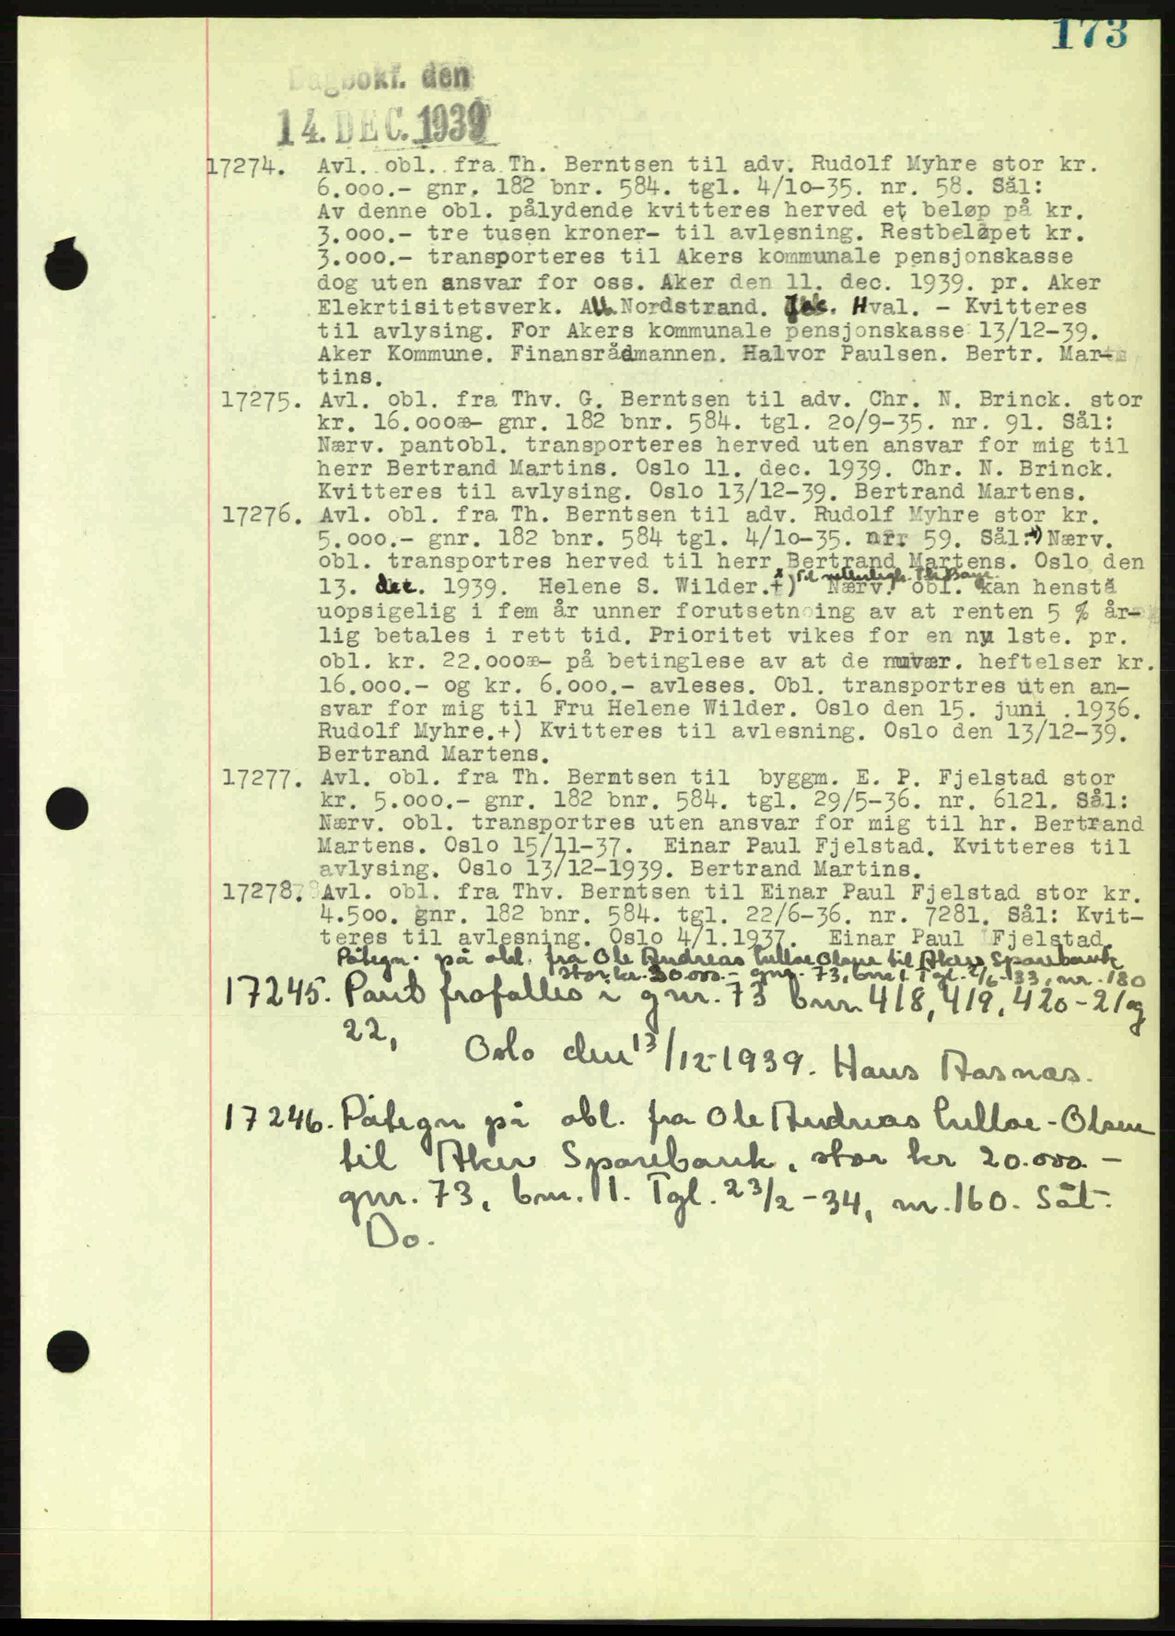 173
Dagbokf. den
14. DEC. 1939
17274. Avl. obl. fra Th. Berntsen til adv. Rudolf Myhre stor kr.
6.000.- gnr. 182 bnr. 584. tgl. 4/10-35. nr. 58. Sål:
Av denne obl. pålydende kvitteres herved et beløp på kr.
3.000.- tre tusen kroner- til avlesning. Restbeløpet kr.
3.000.- transporteres til Akers kommunale pensjonskasse
dog uten ansvar for oss. Aker den 11. dec. 1939. pr. Aker
Elekrtisitetsverk. Nordstrand. Hval. - Kvitteres
til avlysing. For Akers kommunale pensjonskasse 13/12-39.
Aker Kommune. Finansrådmannen. Halvor Paulsen. Bertr. Mar-
tins.
17275. Avl. obl. fra Thv. G. Berntsen til adv. Chr. N. Brinck. stor
kr. 16.000æ- gnr. 182 bnr. 584. tgl. 20/9-35. nr. 91. Sål:
Nærv. pantobl. transporteres herved uten ansvar for mig til
herr Bertrand Martins. Oslo 11. dec. 1939. Chr. N. Brinck.
Kvitteres til avlysing. Oslo 13/12-39. Bertrand Martens.
17276. Avl. obl. fra Th. Berntsen til adv. Rudolf Myhre stor kr.
5.000.- gnr. 182 bnr. 584 tgl. 4/10-35. nrr 59. Sål:+) Nærv.
obl. transportres herved til herr Bertrand Martens. Oslo den
13. dec. 1939. Helene S. Wilder.+) Nærv. obl. kan henstå
uopsigelig i fem år unner forutsetning av at renten 5 % år-
lig betales i rett tid. Prioritet vikes for en ny 1ste. pr.
obl. kr. 22.000æ- på betinglese av at de nuvær. heftelser kr.
16.000.- og kr. 6.000.- avleses. Obl. transportres uten an-
svar for mig til Fru Helene Wilder. Oslo den 15. juni .1936.
Rudolf Myhre.+) Kvitteres til avlesning. Oslo den 13/12-39.
Bertrand Martens.
17277. Avl. obl. fra Th. Berntsen til byggm. E. P. Fjelstad stor
kr. 5.000.- gnr. 182 bnr. 584. tgl. 29/5-36. nr. 6121. Sål:
Nærv. obl. transportres uten ansvar for mig til hr. Bertrand
Martens. Oslo 15/11-37. Einar Paul Fjelstad. Kvitteres til
avlysing. Oslo 13/12-1939. Bertrand Martins.
17278. Avl. obl. fra Thv. Berntsen til Einar Paul Fjelstad stor kr.
4.500. gnr. 182 bnr. 584. tgl. 22/6-36. nr. 7281. Sål: Kvit-
teres til avlesning. Oslo 4/1.1937. Einar Paul Fjelstad.
Påtegn. på obl. fra Ole Andreas Olsen til Akers Sparebank
stor kr. 30.000.- gnr. 73, bnr 1 Tgl. 2/6-33, nr. 180
17245. Pant frafalles i gnr. 73 bnr. 418, 419, 420-21 og
22, Oslo den 13/12-1939. Hans Aasnæs.
17246. Påtegn på obl. fra Ole Andreas Lilloe-Olsen
til Aker Sparebank, stor kr 20.000.-
gnr. 73, bnr. 11. Tgl. 23/2-34, nr. 160. Sål:
Do.